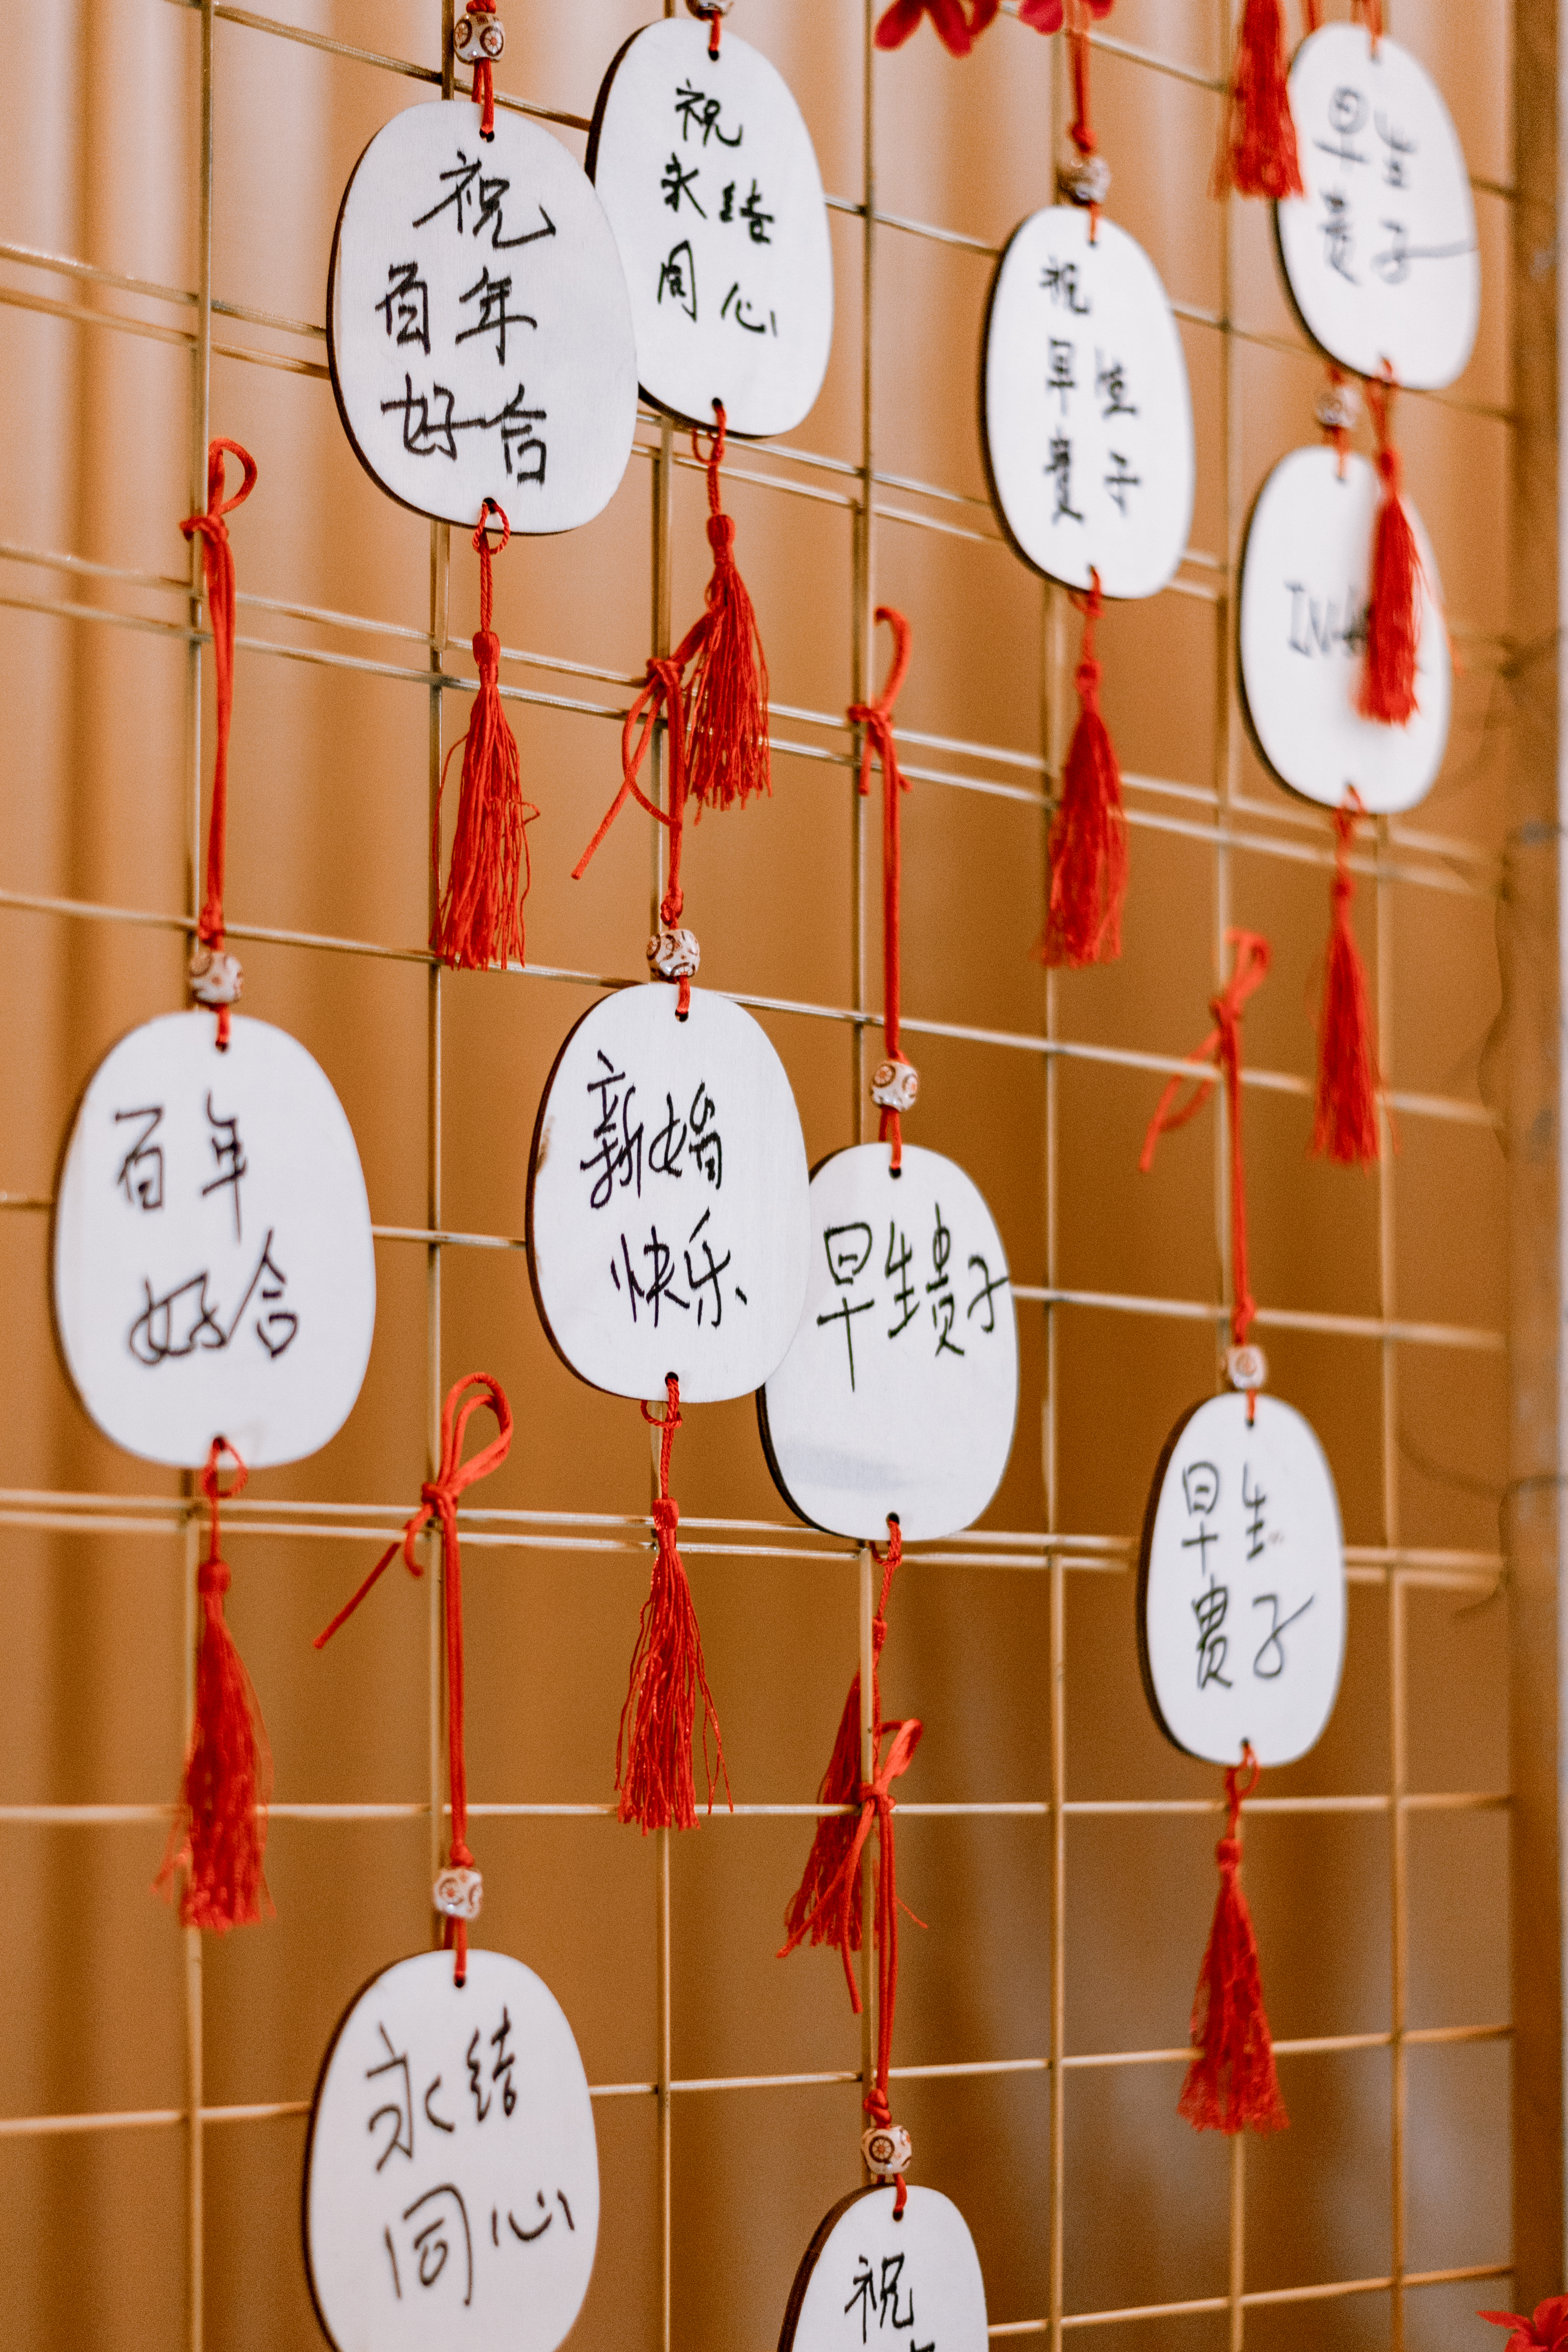 祝
百年
好合
祝
永结
同心
祝
早生
贵子
早生
贵子
百年
好合
新婚
快乐
早生贵子
早生
贵子
永结
同心
祝